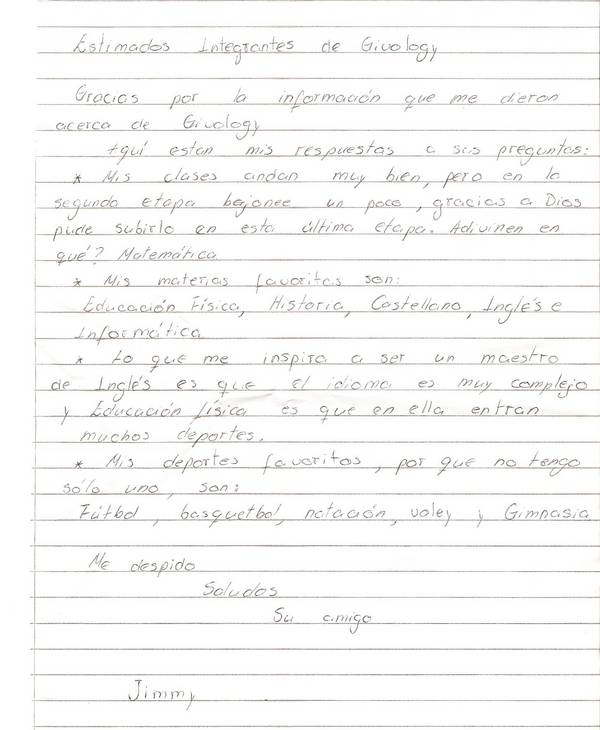 Estimados Integrantes de Givology
Gracias por la información que me dieron
acerca de Givology
Aquí estan mis respuestas a sus preguntas:
* Mis clases andan muy bien, pero en la
segunda etapa bajonee un poco, gracias a Dios
pude subirlo en esta última etapa. Adivinen en
qué? Matemática.
* Mis materias favoritas son:
Educación Física, Historia, Castellano, Inglés e
Informática.
* Lo que me inspira a ser un maestro
de Inglés es que el idioma es muy complejo
y Educación física es que en ella entran
muchos deportes.
* Mis deportes favoritos, por que no tengo
sólo uno, son:
Fútbol, basquetbol, natación, voley y Gimnasia
Me despido
Saludos
Su amigo
Jimmy